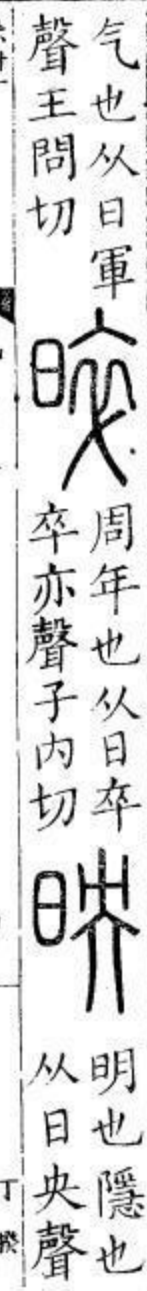 气也从日軍
聲王問切
晬
周年也从日卒
卒亦聲子内切
映
明也隱也
从日央聲